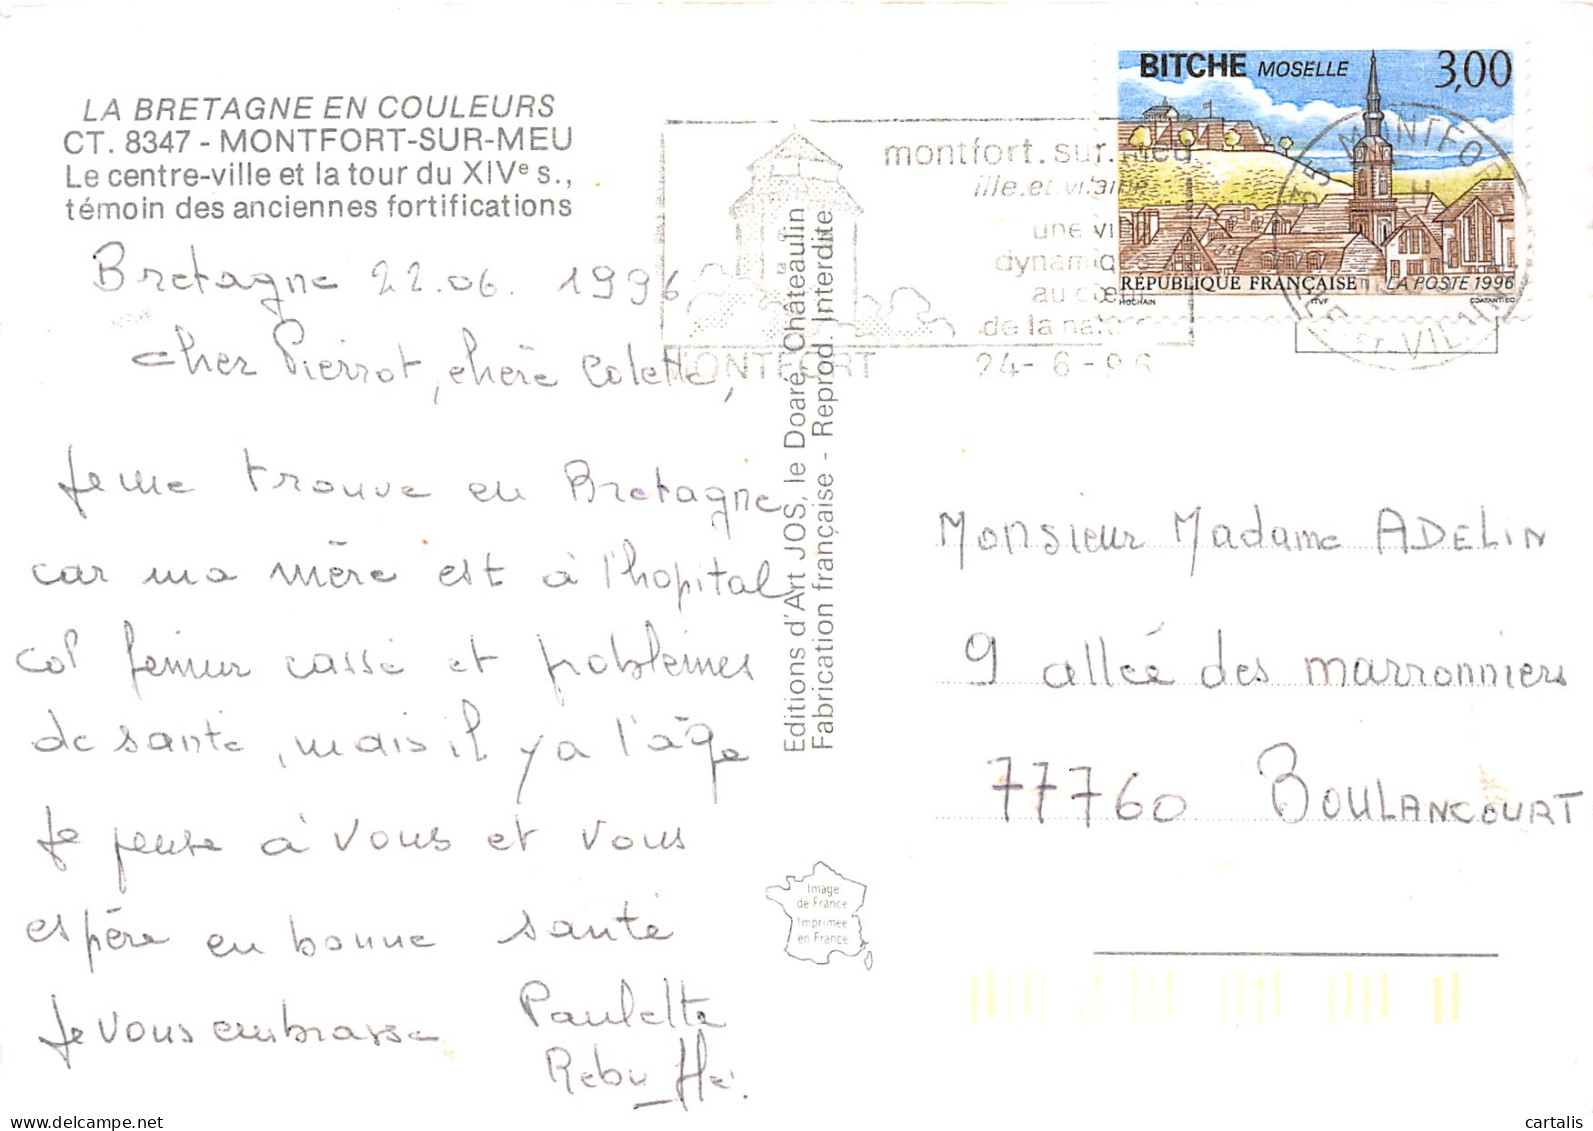 LA BRETAGNE EN COULEURS
CT. 8347 - MONTFORT-SUR-MEU
Le centre-ville et la tour du XIVe s.,
témoin des anciennes fortifications
Bretagne 22.06.1996
Cher Pierrot, chère Colette,
Je me trouve en Bretagne
car ma mère est à l'hopital
col fémur cassé et problèmes
de santé, mais il y a l'âge
Je pense à vous et vous
espère en bonne santé
Je vous embrasse
Paulette
montfort.sur.meu
ille.et.vilaine
une vi
dynamique
au cœur
de la nature
MONTFORT
24-6-96
BITCHE MOSELLE 3,00
RÉPUBLIQUE FRANÇAISE LA POSTE 1996
HOCHAIN ITVF COATANTIEC
MONTFO
ET VILAINE
Editions d'Art JOS, le Doaré, Châteaulin
Fabrication française - Reprod. Interdite
Monsieur Madame ADELIN
9 allée des marronniers
77760 BOULANCOURT
Image
de France
Imprimée
en France
delcampe.net
cartalis